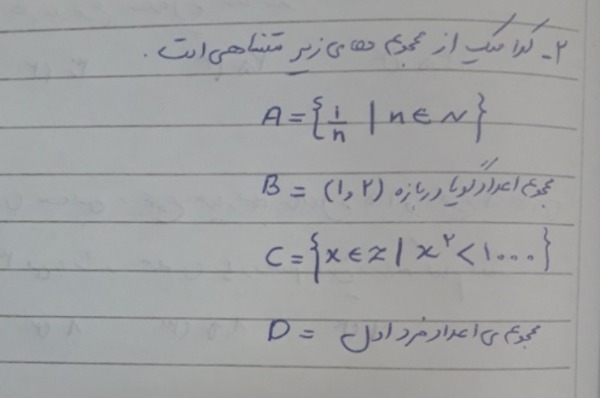 ۲- کدامیک از مجموعه های زیر متناهی است.
A = {۱/n | n ∈ N}
B = (۱, ۲) مجموعه اعداد گویا در بازه
C = {x ∈ z | x² < ۱۰۰۰۰}
D = مجموعه ی اعداد فرد اول